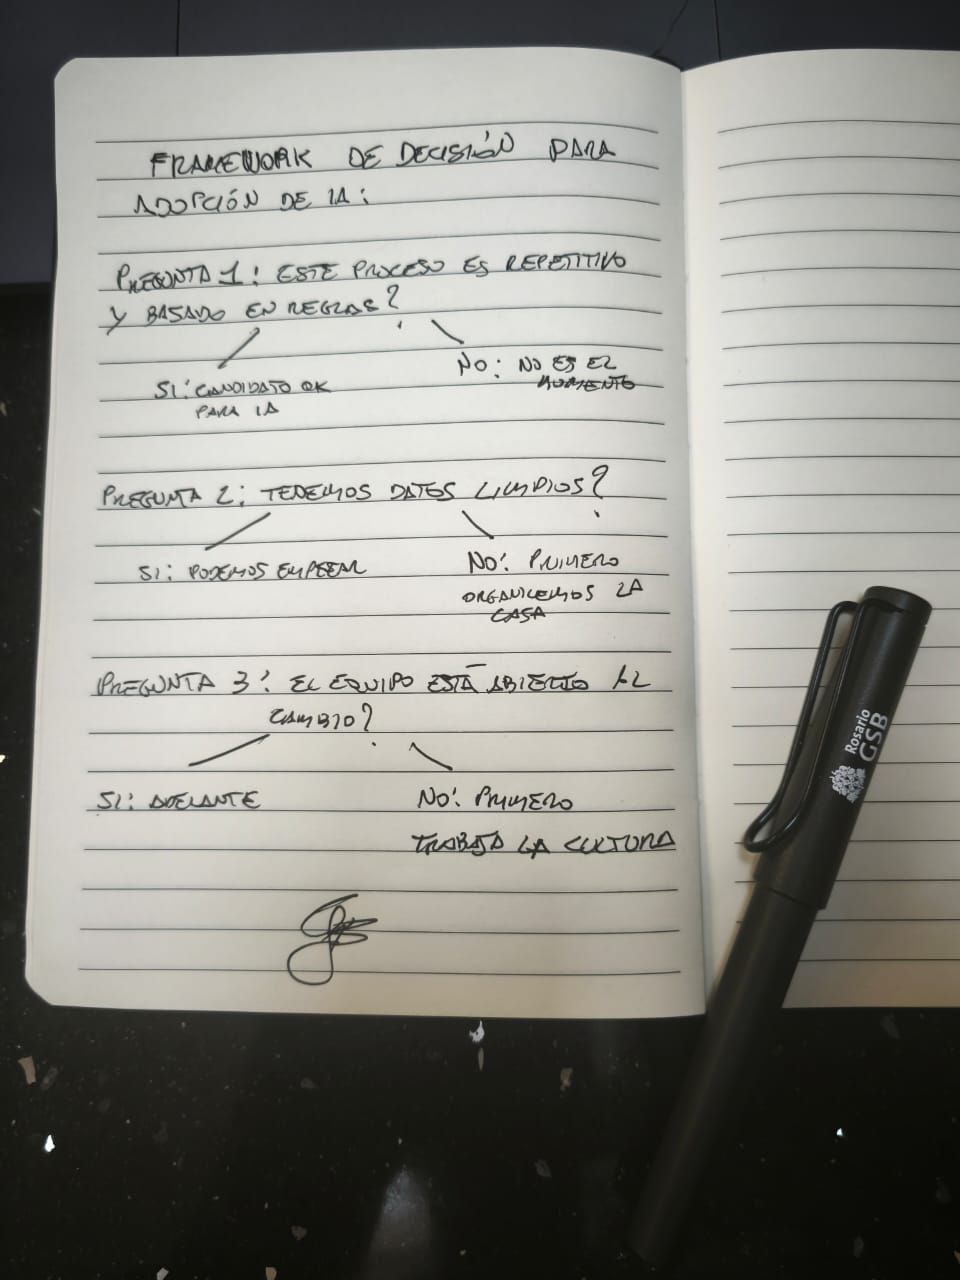 FRAMEWORK DE DECISIÓN PARA
ADOPCIÓN DE IA:
PREGUNTA 1: ESTE PROCESO ES REPETITIVO
Y BASADO EN REGLAS?
SI: CANDIDATO OK
PARA IA
NO: NO ES EL
MOMENTO
PREGUNTA 2: TENEMOS DATOS LIMPIOS?
SI: PODEMOS EMPEZAR
NO: PRIMERO
ORGANICEMOS LA
CASA
PREGUNTA 3: EL EQUIPO ESTÁ ABIERTO AL
CAMBIO?
SI: ADELANTE
NO: PRIMERO
TRABAJA LA CULTURA
Rosario
GSB